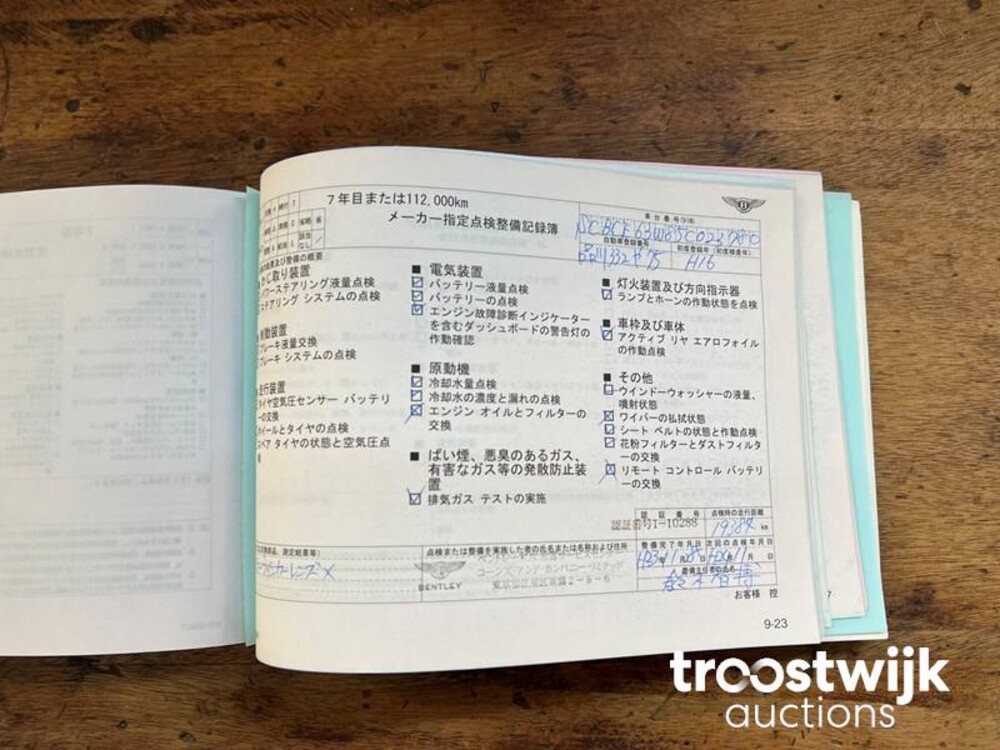 7年目または112,000km
メーカー指定点検整備記録簿
車台番号(VIN)
自動車登録番号
初度登録年(初度検査年)
H16
点検結果及び整備の概要
かじ取り装置
パワーステアリング液量点検
ステアリング システムの点検
制動装置
ブレーキ液量交換
ブレーキ システムの点検
走行装置
タイヤ空気圧センサー バッテリ
ーの交換
ホイールとタイヤの点検
スペア タイヤの状態と空気圧点
検
■ 電気装置
バッテリー液量点検
バッテリーの点検
エンジン故障診断インジケーター
を含むダッシュボードの警告灯の
作動確認
■ 原動機
冷却水量点検
冷却水の濃度と漏れの点検
エンジン オイルとフィルターの
交換
■ ばい煙、悪臭のあるガス、
有害なガス等の発散防止装
置
排気ガス テストの実施
■ 灯火装置及び方向指示器
ランプとホーンの作動状態を点検
■ 車枠及び車体
アクティブ リヤ エアロフォイル
の作動点検
■ その他
ウインドーウォッシャーの液量、
噴射状態
ワイパーの払拭状態
シート ベルトの状態と作動点検
花粉フィルターとダストフィルタ
ーの交換
リモート コントロール バッテリ
ーの交換
認証番号
点検時の走行距離
認証番号1-10288
19384 km
整備完了年月日
次回の点検年月日
整備主任者の氏名
点検または整備を実施した者の氏名または名称および住所
コーンズ・アンド・カンパニー・リミテッド
BENTLEY
お客様 控
9-23
troostwijk
auctions